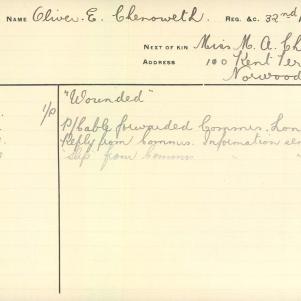 NAME Oliver. E. Chenoweth. REG. &C. 32nd
NEXT OF KIN Miss M. A. Ch
ADDRESS 100 Kent Ter
Norwood
1/p "Wounded"
P/Cable forwarded Commrs. Lon
Reply from Commrs. Information sen
Slip from Commrs